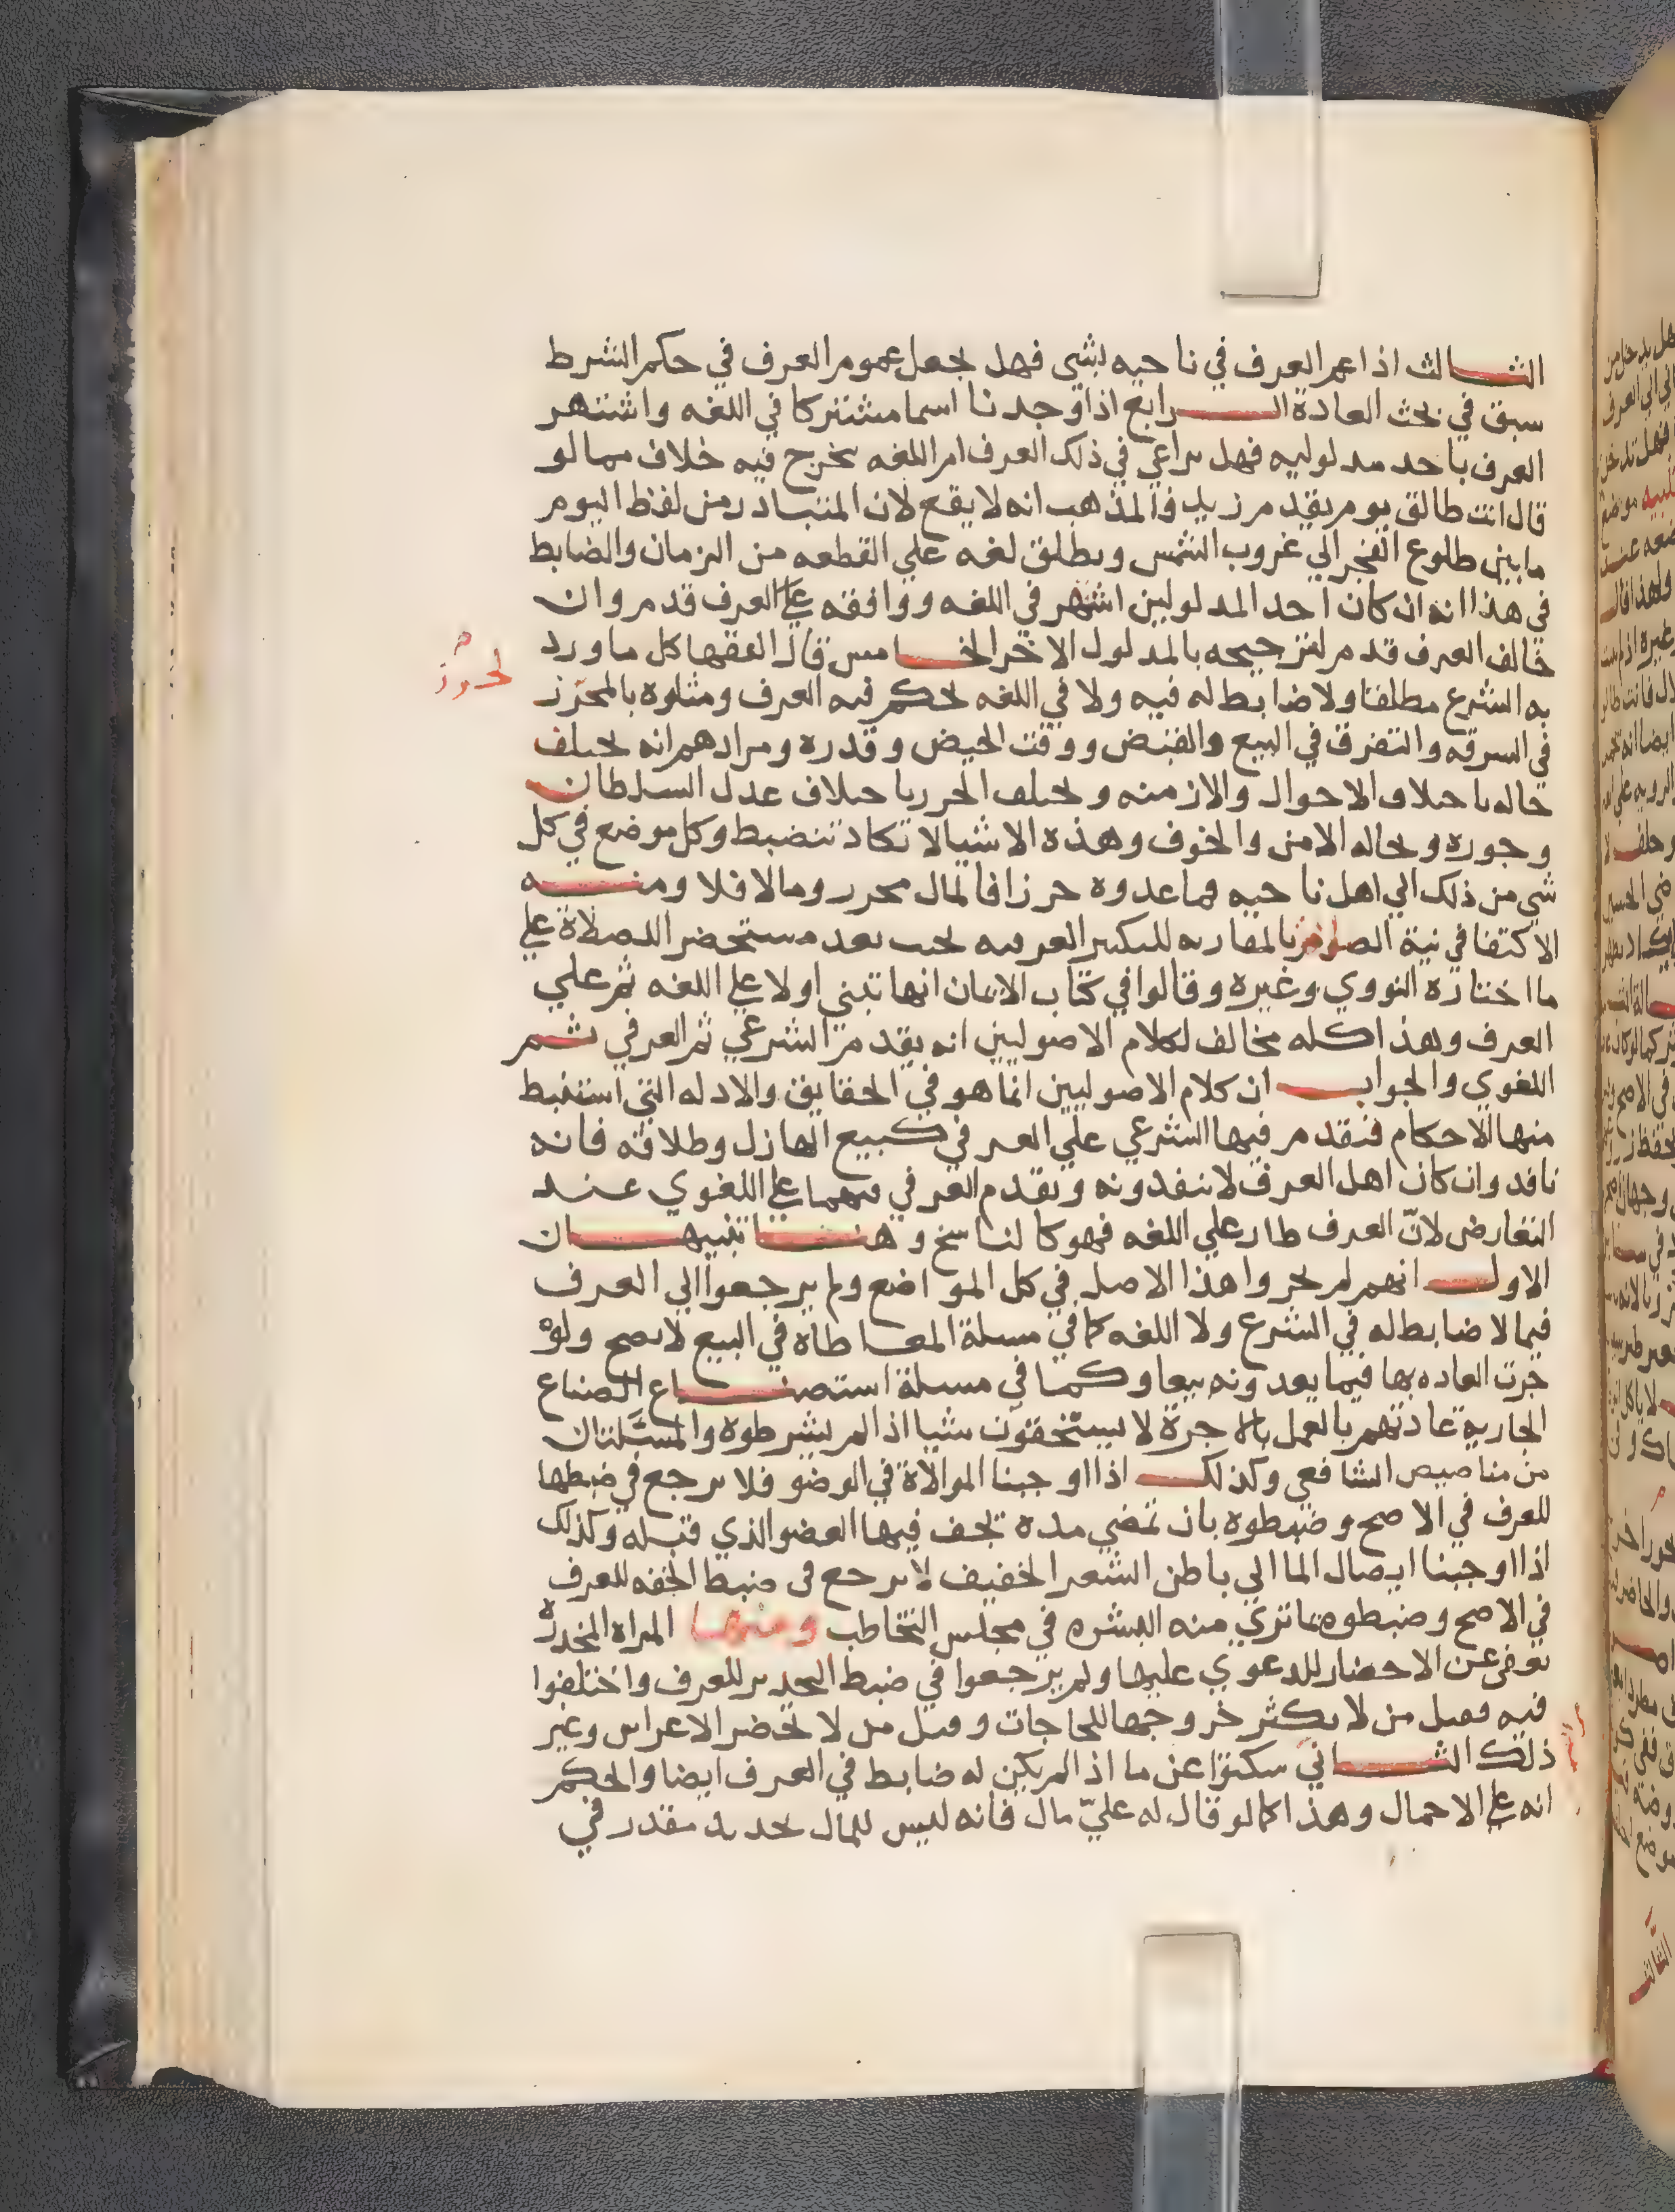 الثالث اذا عم العرف في ناحيه بشي فهل يجعل عموم العرف في حكم الشرط
سبق في بحث العادة الرابع اذا وجدنا اسما مشتركا في اللغه واشتهر
العرف باحد مدلوليه فهل يراعي في ذلك العرف ام اللغه يخرج فيه خلاف مما لو
قال انت طالق يوم يقدم زيد والمذهب انه لا يقع لان المتبادر من لفظ اليوم
مابين طلوع الفجر الي غروب الشمس ويطلق لغه علي القطعه من الزمان والضابط
في هذا انه ان كان احد المدلولين اشهر في اللغه ووافقه علي العرف قدم وان
خالف العرف قدم لترجيحه بالمدلول الاخر الخامس قال الفقها كل ما ورد
به الشرع مطلقا ولا ضابط له فيه ولا في اللغه يحكم فيه العرف ومثلوه بالمحرز
في السرقه والتفرق في البيع والقبض ووقت الحيض وقدره ومرادهم انه يختلف
حاله باختلاف الاحوال والازمنه ويختلف الحرز باختلاف عدل السلطان
وجوره وبحاله الامن والخوف وهذه الاشيا لا تكاد تنضبط وكل موضع في كل
شي من ذلك الي اهل ناحيه فما عدوه حرزا فالمال محرز وما لا فلا ومنه
الاكتفا في نية الصلوة بالمقارنه للتكبير العرفيه بحيث يعد مستحضر اللصلاة علي
ما اختاره النووي وغيره وقالوا في كتاب الايمان انها تبني اولا علي اللغه ثم علي
العرف وهذا كله مخالف لكلام الاصوليين انه يقدم الشرعي ثم العرفي ثم
اللغوي والجواب ان كلام الاصوليين انما هو في الحقايق والادله التي استنبط
منها الاحكام فنقدم فيها الشرعي علي العرفي كبيع الهازل وطلاقه فانه
نافد وان كان اهل العرف لا ينفدونه ويقدم العرفي فيهما علي اللغوي عند
التعارض لان العرف طار علي اللغه فهو كالناسخ وهنا تنبيهان
الاول انهم لم يجروا هذا الاصل في كل المواضع ولم يرجعوا الي العرف
فيما لا ضابط له في الشرع ولا اللغه كما في مسلة المعاطاة في البيع لا يصح ولو
جرت العاده بها فيما يعدونه بيعا وكما في مسلة استصناع الصناع
الجارية عادتهم بالعمل بالاجرة لا يستحقون شيا اذا لم يشرطوه والمسئلتان
من مناصيص الشافعي وكذلك اذا اوجبنا الموالاة في الوضو فلا يرجع في ضبطها
للعرف في الاصح وضبطوه بان تمضي مدة يجف فيها العضو الذي قبله وكذلك
اذا اوجبنا ايصال الما الي باطن الشعر الخفيف لا يرجع في ضبط الخفه للعرف
في الاصح وضبطوه بما تري منه البشره في مجلس التخاطب ومنها المراة المخدرة
تعفي عن الاحضار للدعوي عليها ولم يرجعوا في ضبط التخدير للعرف واختلفوا
فيه فقيل من لا يكثر خروجها للحاجات وقيل من لا تحضر الاعراس وغير
ذلك الثاني سكتوا عن ما اذا لم يكن له ضابط في العرف ايضا والحكم
انه علي الاحمال وهذا كما لو قال له عليّ مال فانه ليس للمال تحديد مقدر في